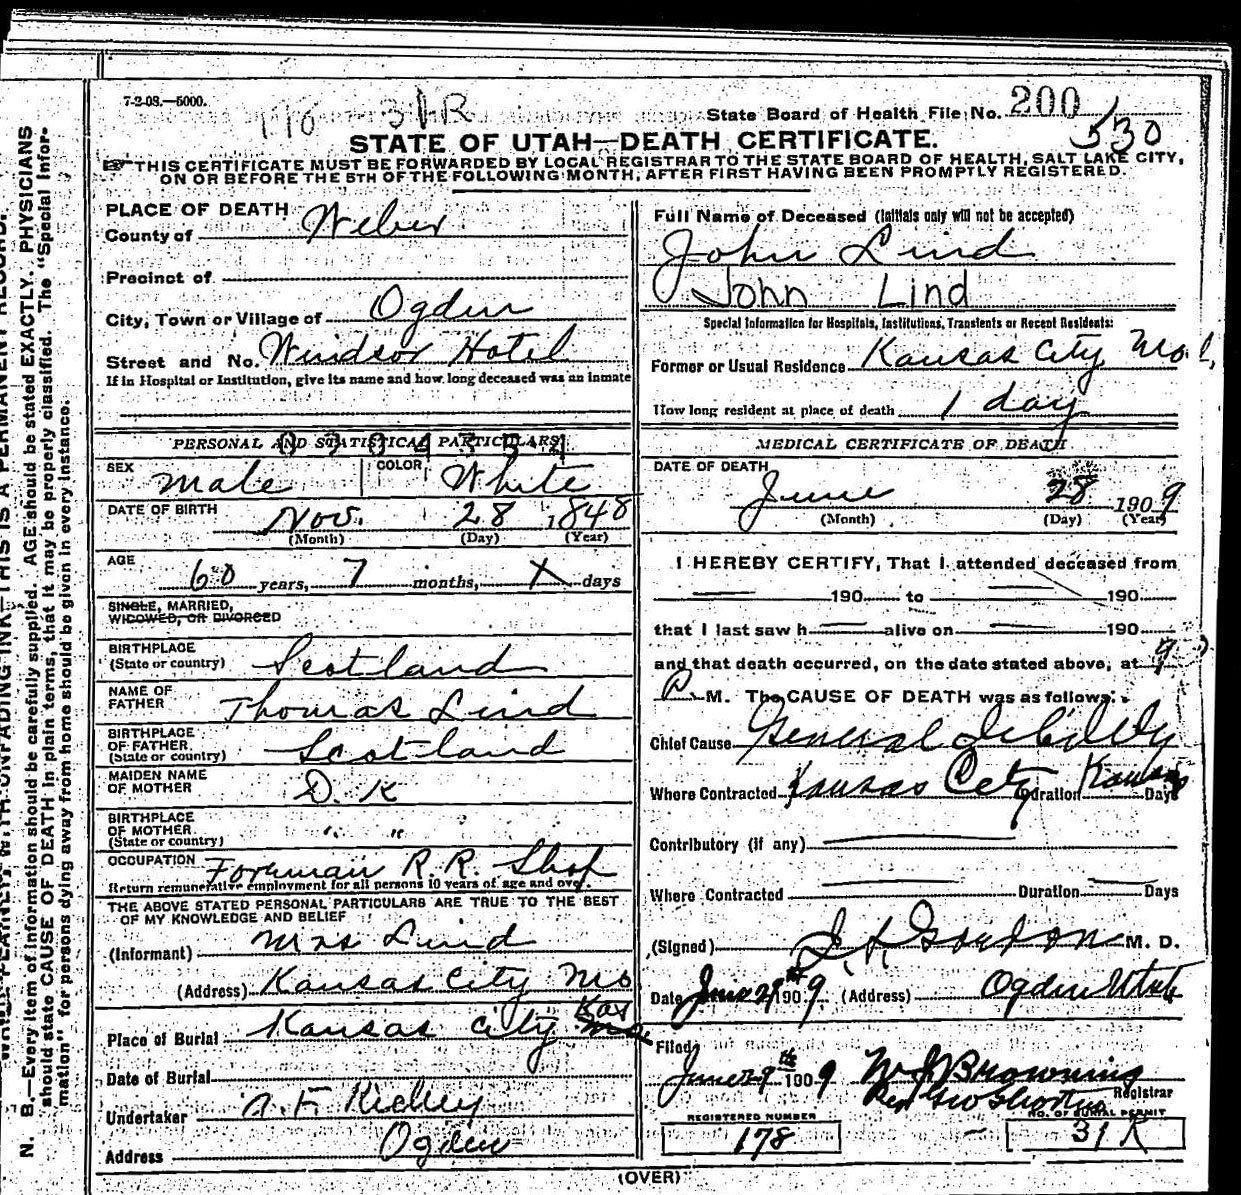 7-2-08.—5000.
State Board of Health File No. 200
176 31R
530
STATE OF UTAH—DEATH CERTIFICATE.
THIS CERTIFICATE MUST BE FORWARDED BY LOCAL REGISTRAR TO THE STATE BOARD OF HEALTH, SALT LAKE CITY,
ON OR BEFORE THE 5TH OF THE FOLLOWING MONTH, AFTER FIRST HAVING BEEN PROMPTLY REGISTERED.
PLACE OF DEATH
County of Weber
Precinct of
City, Town or Village of Ogden
Street and No. Windsor Hotel
If in Hospital or Institution, give its name and how long deceased was an inmate
PERSONAL AND STATISTICAL PARTICULARS
SEX Male COLOR White
DATE OF BIRTH Nov. 28 1848
(Month) (Day) (Year)
AGE 60 years, 7 months, X days
SINGLE, MARRIED,
WIDOWED, OR DIVORCED
BIRTHPLACE
(State or country) Scotland
NAME OF
FATHER Thomas Lind
BIRTHPLACE
OF FATHER
(State or country) Scotland
MAIDEN NAME
OF MOTHER D. K
BIRTHPLACE
OF MOTHER " "
(State or country)
OCCUPATION Foreman R. R. Shop
Return remunerative employment for all persons 10 years of age and over.
THE ABOVE STATED PERSONAL PARTICULARS ARE TRUE TO THE BEST
OF MY KNOWLEDGE AND BELIEF
(Informant) Mrs Lind
(Address) Kansas City Mo
Place of Burial Kansas City Kas
Date of Burial
Undertaker
Address Ogden
Full Name of Deceased (Initials only will not be accepted)
John Lind
John Lind
Special Information for Hospitals, Institutions, Transients or Recent Residents:
Former or Usual Residence Kansas City Mo.
How long resident at place of death 1 day
MEDICAL CERTIFICATE OF DEATH
DATE OF DEATH
June 28 1909
(Month) (Day) (Year)
I HEREBY CERTIFY, That I attended deceased from
190 to 190
that I last saw h alive on 190
and that death occurred, on the date stated above, at 9
P. M. The CAUSE OF DEATH was as follows:
Chief Cause General Debility
Where Contracted Kansas City Kansas Duration Days
Contributory (if any)
Where Contracted Duration Days
(Signed) Gordon M. D.
Date June 29 1909 (Address) Ogden Utah
Filed
June 29th 1909 Browning
Registrar
REGISTERED NUMBER
178
NO. OF BURIAL PERMIT
31 R
(OVER)
N. B.—Every item of information should be carefully supplied. AGE should be stated EXACTLY. PHYSICIANS
should state CAUSE OF DEATH in plain terms, that it may be properly classified. The "Special Infor-
mation" for persons dying away from home should be given in every instance.